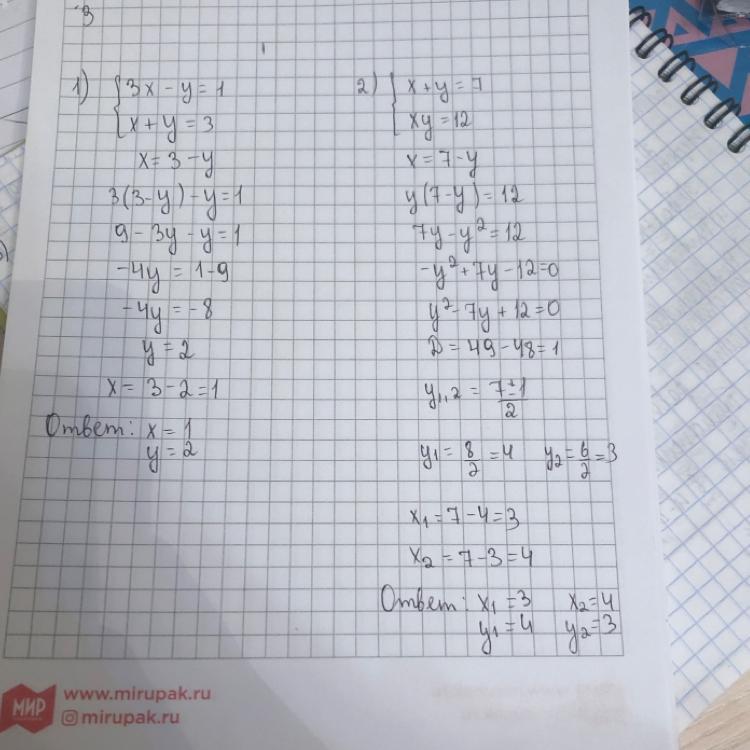 3
1) {3x - y = 1
x + y = 3
x = 3 - y
3(3-y) - y = 1
9 - 3y - y = 1
-4y = 1-9
-4y = -8
y = 2
x = 3 - 2 = 1
Ответ: x = 1
y = 2
2) {x + y = 7
xy = 12
x = 7 - y
y(7-y) = 12
7y - y² = 12
-y² + 7y - 12 = 0
y² - 7y + 12 = 0
D = 49 - 48 = 1
y₁,₂ = (7±1)/2
y₁ = 8/2 = 4 y₂ = 6/2 = 3
x₁ = 7 - 4 = 3
x₂ = 7 - 3 = 4
Ответ: x₁ = 3 x₂ = 4
y₁ = 4 y₂ = 3
МИР
www.mirupak.ru
mirupak.ru